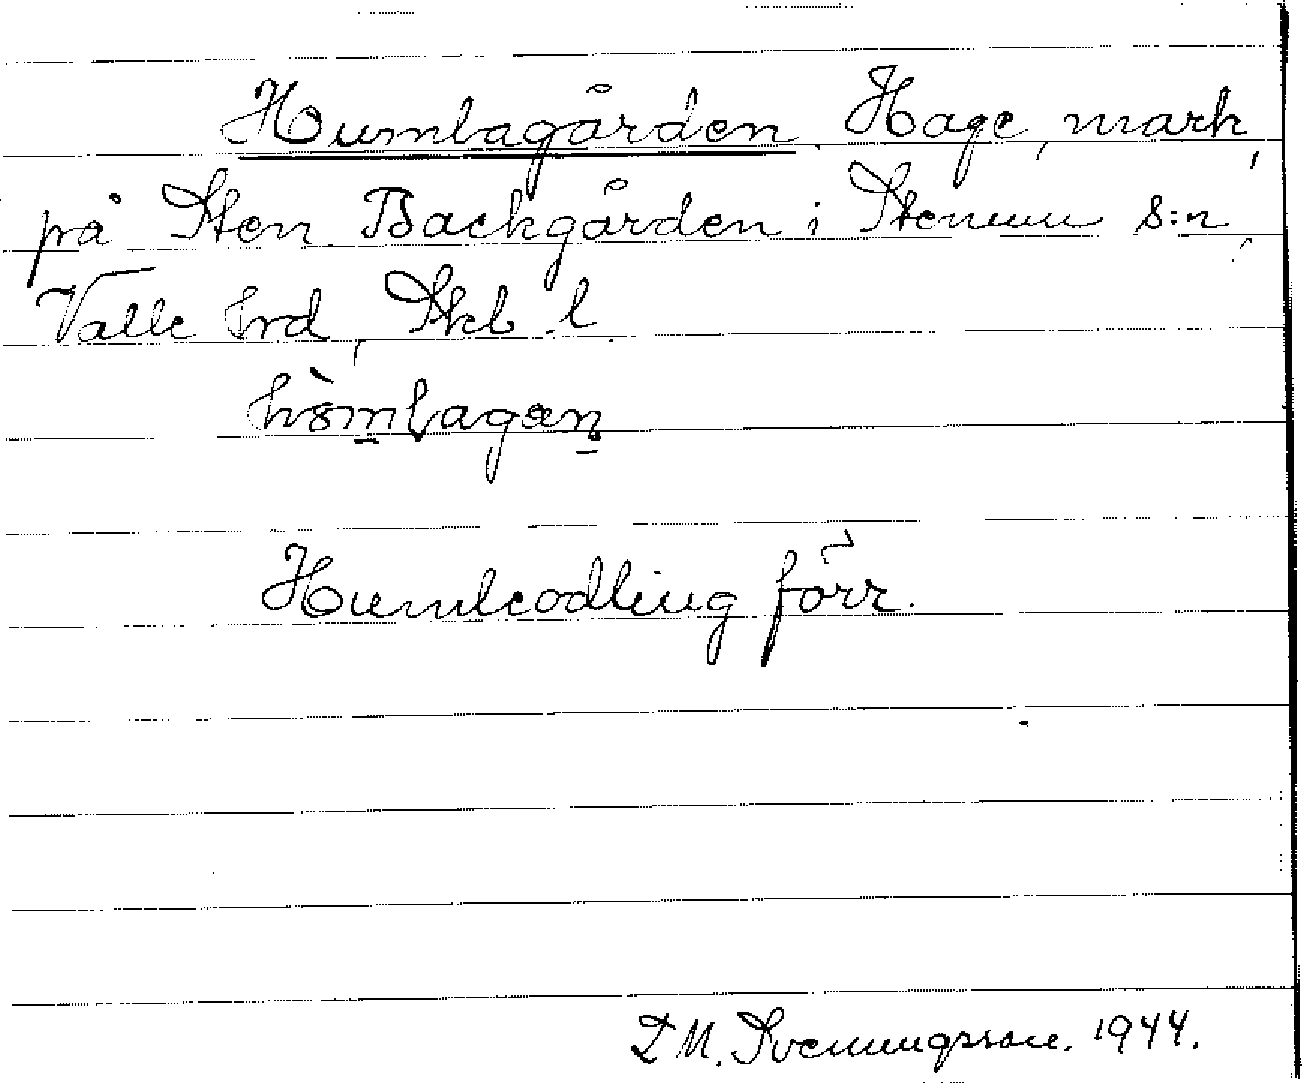 Humlagården. Hage, mark,
på Sten Backgården i Stenum s:n,
Valle hrd, Skb. l.
Humleodling förr.
D M. Svenningsson. 1944.